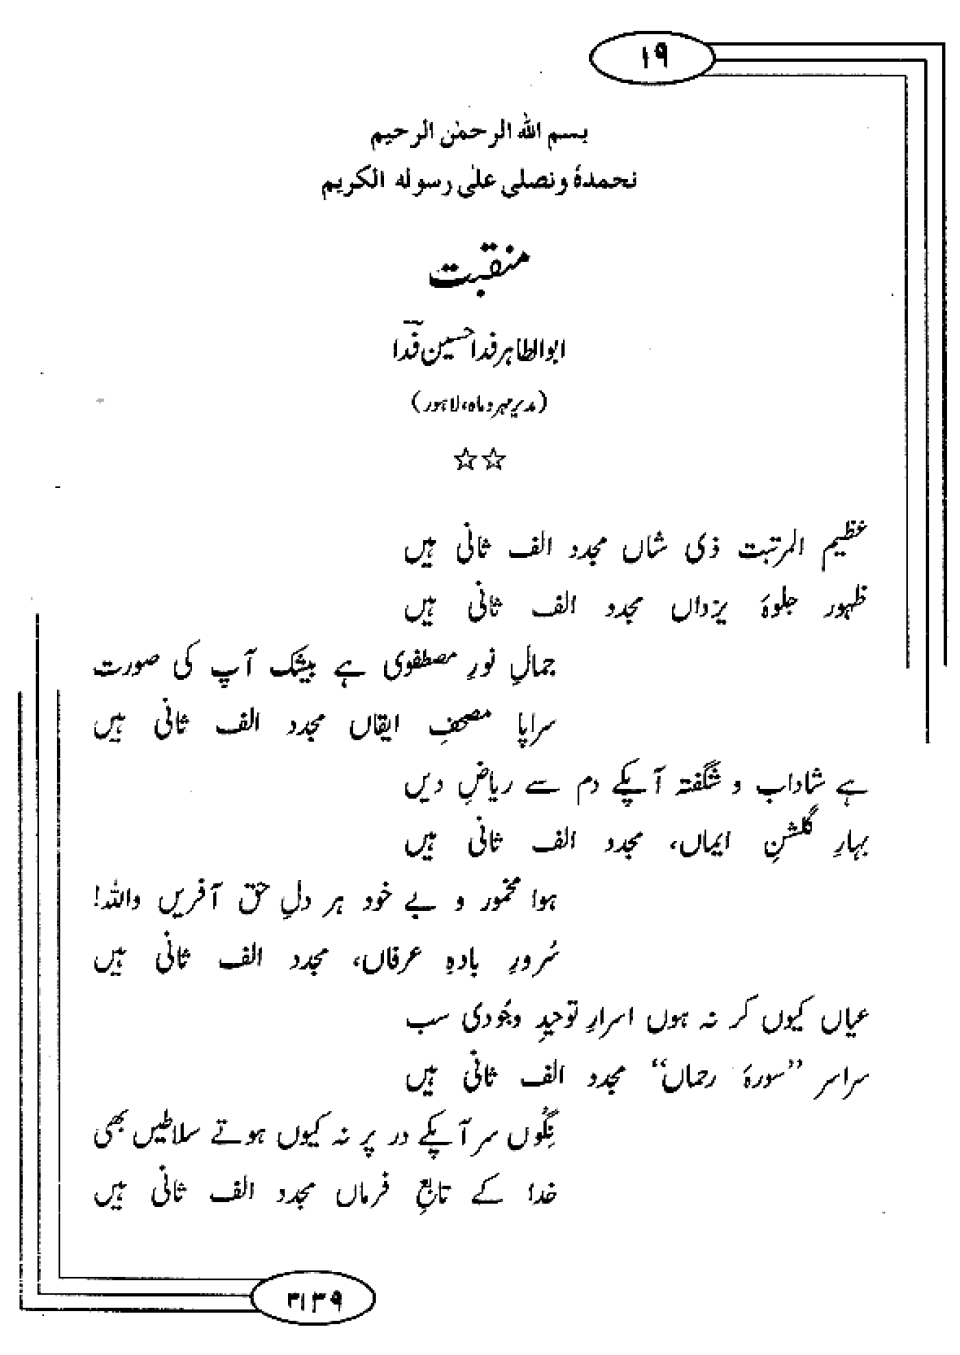 ۱۹
بسم اللہ الرحمٰن الرحیم
نحمدہٗ ونصلی علٰی رسولہ الکریم
منقبت
ابوالطاہر فدا حسین فدا
(مدیر مہر و ماہ، لاہور)
☆☆
عظیم المرتبت ذی شاں مجدد الف ثانی ہیں
ظہور جلوۂ یزداں مجدد الف ثانی ہیں
جمالِ نورِ مصطفوی ہے بیشک آپ کی صورت
سراپا مصحفِ ایقاں مجدد الف ثانی ہیں
ہے شاداب و شگفتہ آپکے دم سے ریاضِ دیں
بہارِ گلشنِ ایماں، مجدد الف ثانی ہیں
ہوا مخمور و بے خود ہر دلِ حق آفریں واللہ!
سُرورِ بادہِ عرفاں، مجدد الف ثانی ہیں
عیاں کیوں کر نہ ہوں اسرارِ توحیدِ وجُودی سب
سراسر "سورۂ رحماں" مجدد الف ثانی ہیں
نِگُوں سر آپکے در پر نہ کیوں ہوتے سلاطیں بھی
خدا کے تابعِ فرماں مجدد الف ثانی ہیں
۳۱۳۹